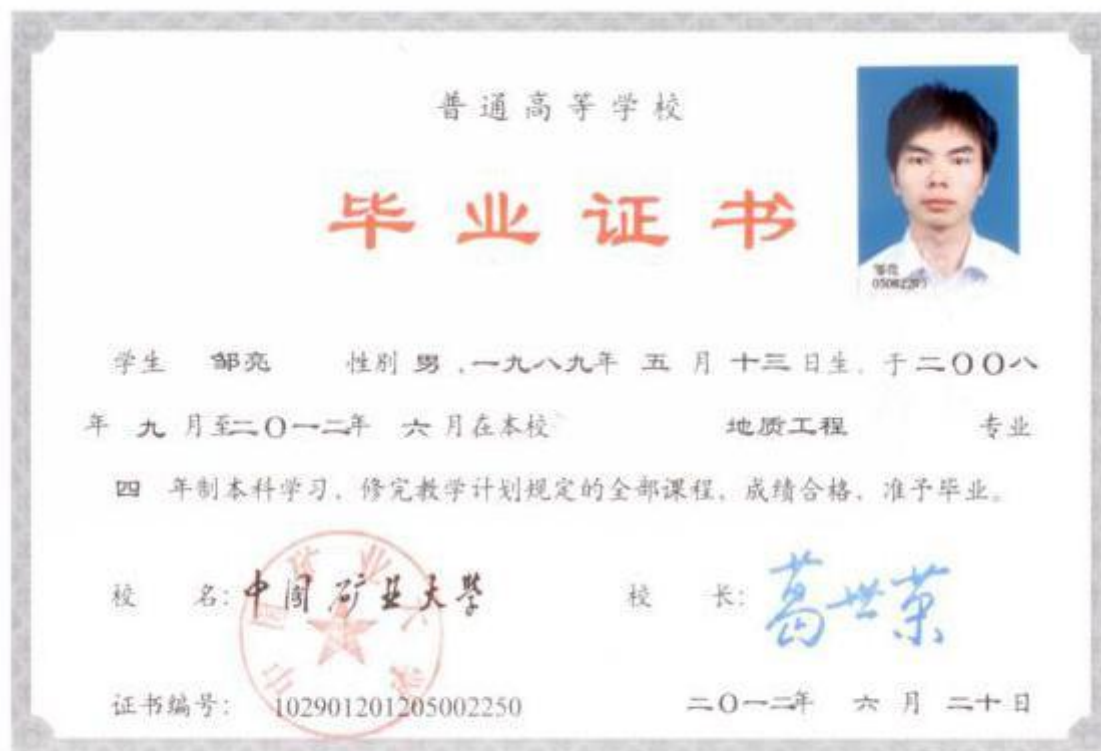 普通高等学校
毕业证书
学生 邹亮 性别 男，一九八九年 五 月 十三 日生，于二〇〇八
年 九 月至二〇一二年 六 月在本校 地质工程 专业
四 年制本科学习，修完教学计划规定的全部课程，成绩合格，准予毕业。
校 名：中国矿业大学 校 长：葛世荣
证书编号： 102901201205002250 二〇一二年 六 月 二十 日